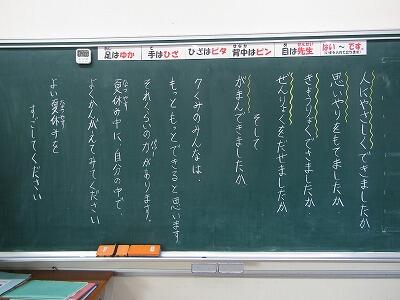 足はゆか
手はひざ
ひざはピタ
背中はピン
目は先生
はい～です。
人にやさしくできましたか
思いやりをもてましたか
きょうりょくできましたか。
ぜんりょくをだせましたか
そして
がまんできましたか
7くみのみんなは
もっともっとできると思います
それくらいの力があります。
夏休み中に、自分の中で、
よくかんがえてみてください
よい夏休みを
すごしてください